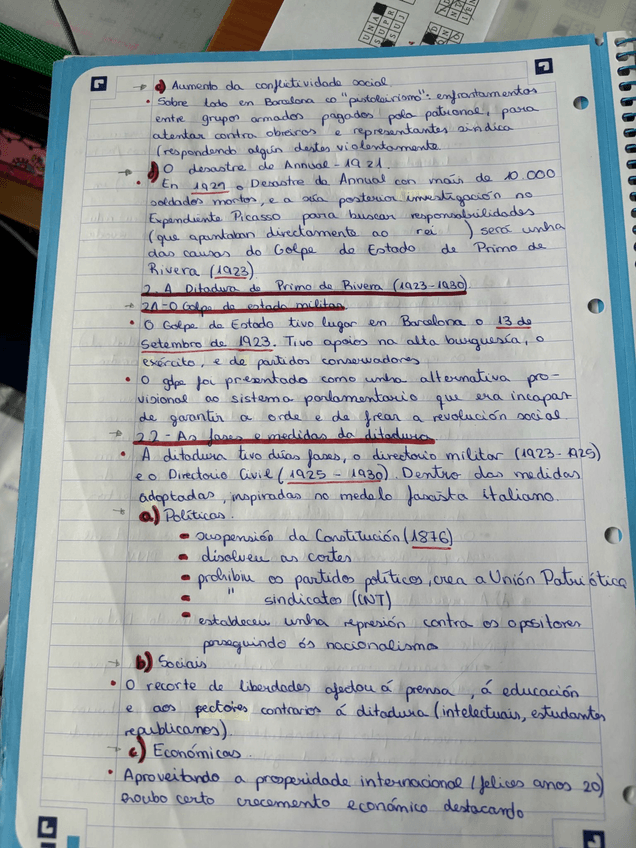 UNA
SUPR
SUJ
c) Aumento da conflictividade social
• Sobre todo en Barcelona co "pistoleirismo": enfrontamentos
entre grupos armados pagados pola patronal, para
atentar contra obreiros e representantes sindica
(respondendo algún destes violentamente
d) O desastre de Annual - 1921.
• En 1921 o Desastre de Annual con máis de 10.000
soldados mortos, e a súa posterior investigación no
Expendiente Picasso para buscar responsabilidades
(que apuntaban directamente ao rei ) será unha
das causas do Golpe de Estado de Primo de
Rivera (1923)
2. A Ditadura de Primo de Rivera (1923-1930)
→ 2.1 - O Golpe de estado militar
• O Golpe de Estado tivo lugar en Barcelona o 13 de
Setembro de 1923. Tivo apoios na alta burguesía, o
exército, e de partidos conservadores
• O golpe foi presentado como unha alternativa pro-
visional ao sistema parlamentario que era incapar
de garantir a orde e de frear a revolución social
→ 2.2 - As fases e medidas da ditadura
• A ditadura tivo dúas fases, o directorio militar (1923-1925)
e o Directorio Civil (1925 - 1930). Dentro das medidas
adoptadas, inspiradas no modelo fascista italiano.
→ a) Políticas.
• suspensión da Constitución (1876)
• disolveu as cortes
• prohibiu os partidos políticos, crea a Unión Patriótica
• " sindicatos (CNT)
• estableceu unha represión contra os opositores
perseguindo ós nacionalismo
→ b) Sociais
• O recorte de liberdades afectou á prensa, á educación
e aos pectores contrarios á ditadura (intelectuais, estudantes
republicanos).
→ c) Económicas.
• Aproveitando a prosperidade internacional (felices anos 20)
houbo certo crecemento económico destacando